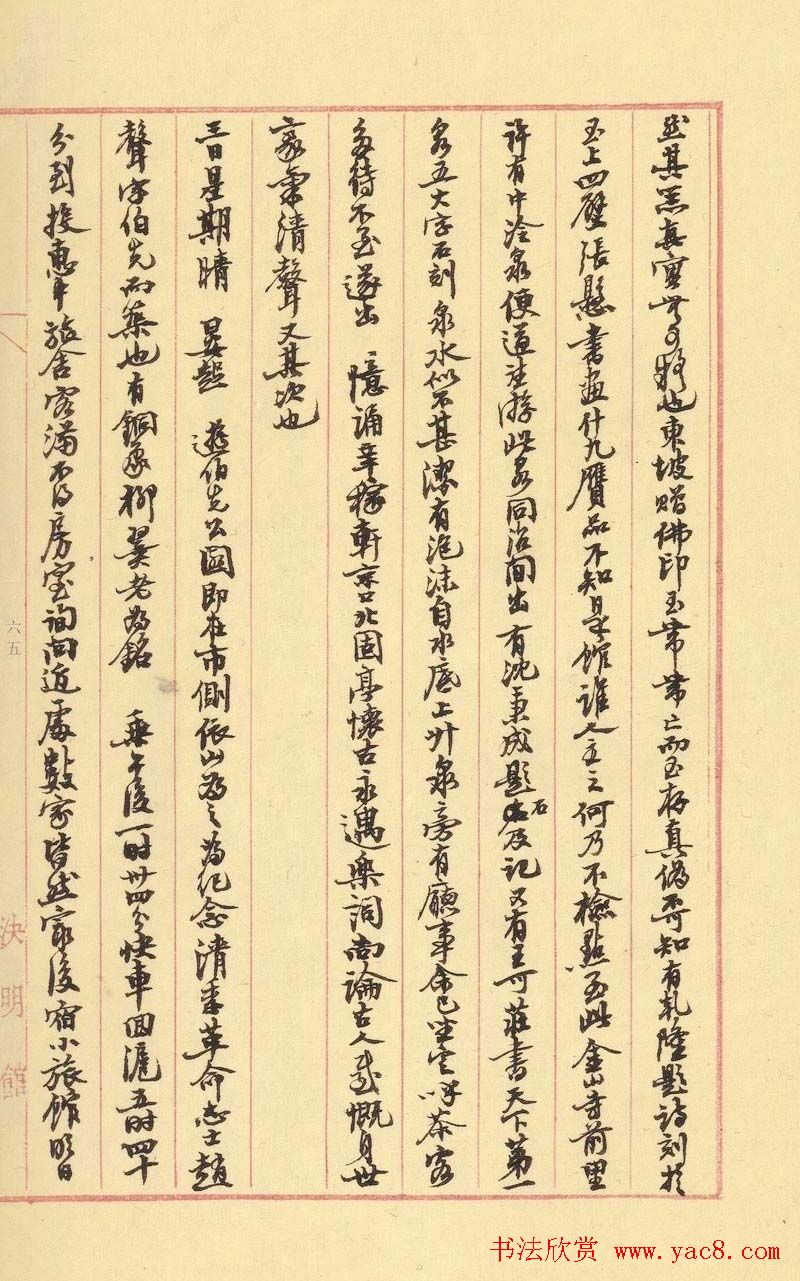 然其器真實無可疑也東坡贈佛印玉帶帶亡而玉存真偽不可知有乾隆題詩刻於
玉上四壁張懸書畫什九贋品不知是館誰人主之何乃不檢點至此金山寺前里
許有中泠泉便道往游此泉同治間出有沈秉成題石及記又有王可莊書天下第一
泉五大字石刻泉水似不甚潔有泡沫自水底上升泉旁有廳事余已坐定呼茶客
多待不至遂出 憶誦辛稼軒京口北固亭懷古永遇樂詞尚論古人感慨身世
豪氣清聲又其次也
三日星期晴 晏起 遊伯先公園即在市側依山為之為紀念清季革命志士趙
聲字伯先而築也有銅像柳翼老為銘 乘午後一时卅四分快車回滬五时四十
分到投惠中旅舍客滿不得房室詢問近處數家皆然最後宿小旅館明日
六五
決明館
书法欣赏 www.yac8.com